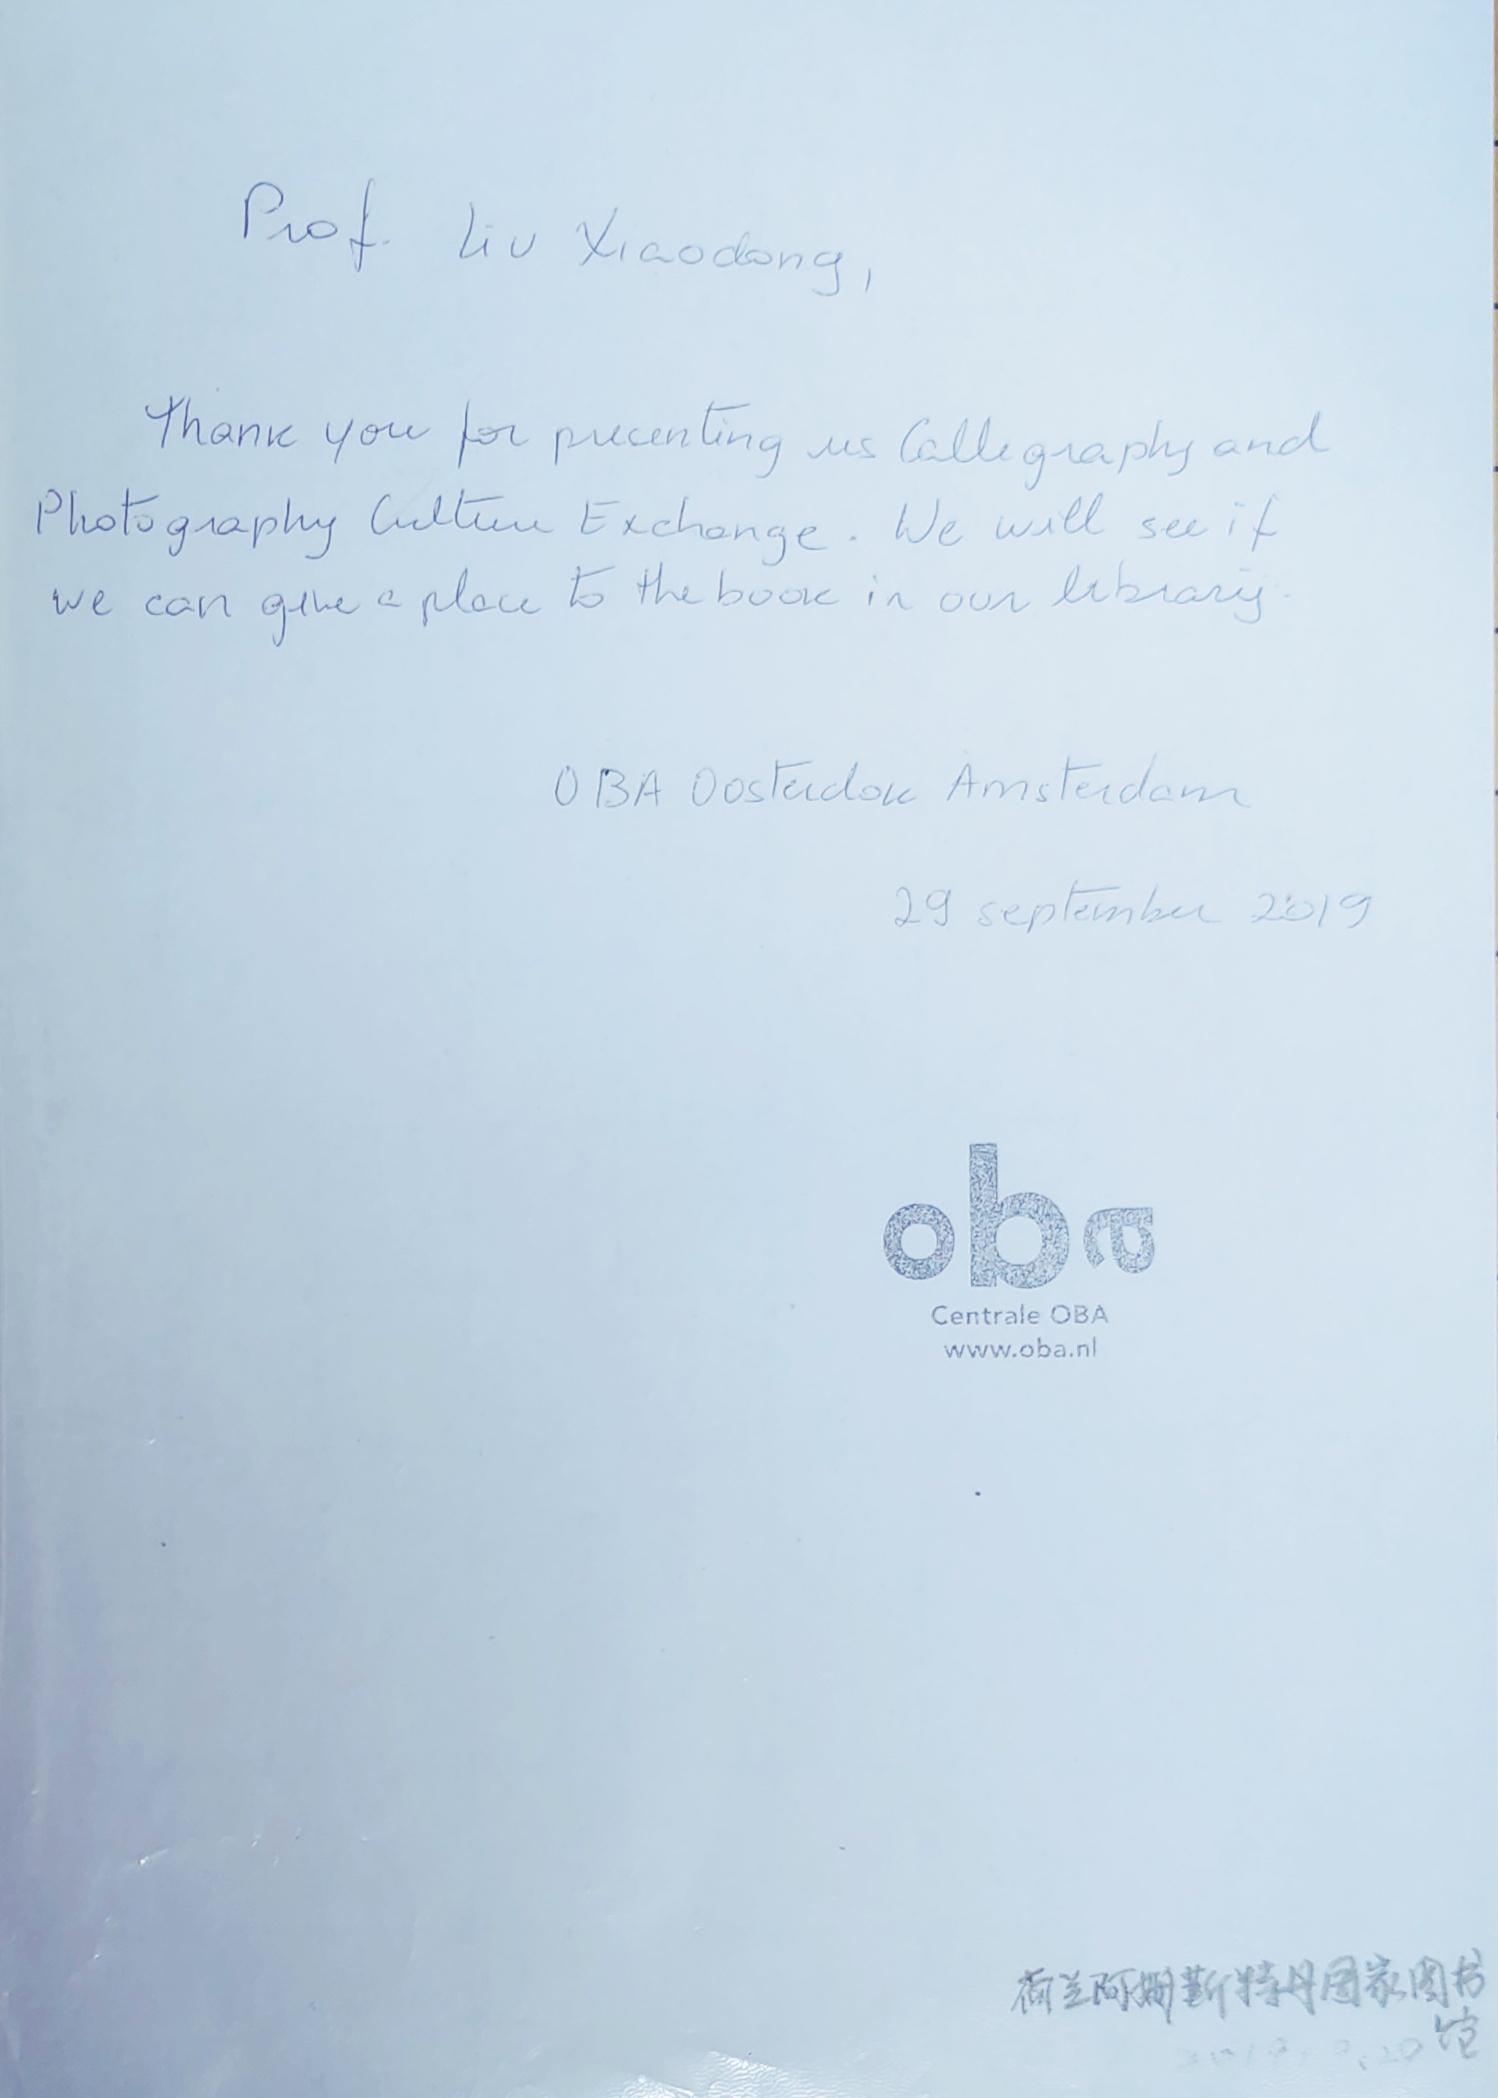 Prof. Liu Xiaodong,
Thank you for precenting us Callegraphy and
Photography Culture Exchange. We will see if
we can give a place to the book in our library.
OBA Oosterdok Amsterdam
29 september 2019
oba
Centrale OBA
www.oba.nl
荷兰阿姆斯特丹国家图书
馆